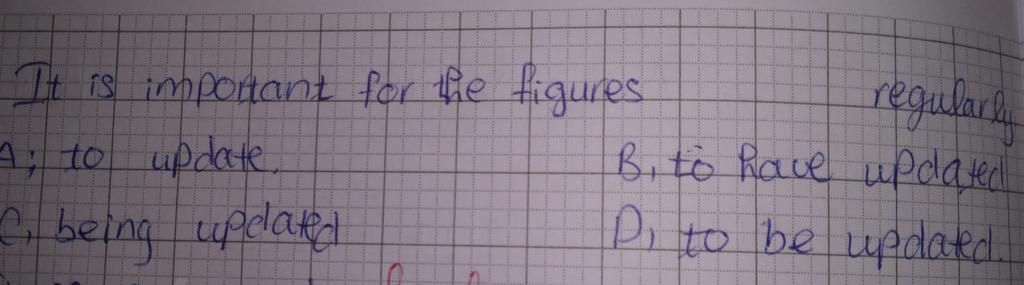 It is important for the figures regularly
A; to update. B, to have updated
C, being updated D, to be updated.